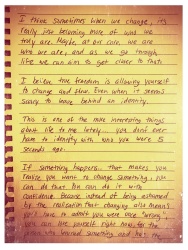 I think sometimes when we change, it's
really just becoming more of who we
truly are. Maybe, at our core, we are
who we are, and as we go through
life we can aim to get closer to that.
I believe true freedom is allowing yourself
to change and grow. Even when it seems
scary to leave behind an identity.
This is one of the more interesting things
about life to me lately... you don't ever
have to identify with who you were 5
seconds ago.
If something happens that makes you
realize you want to change something, you
can do that. You can do it with
confidence because instead of being ashamed
by the realization that changing also means
you'll have to admit you were once "wrong",
you can love yourself right now, for the
one who learned something and